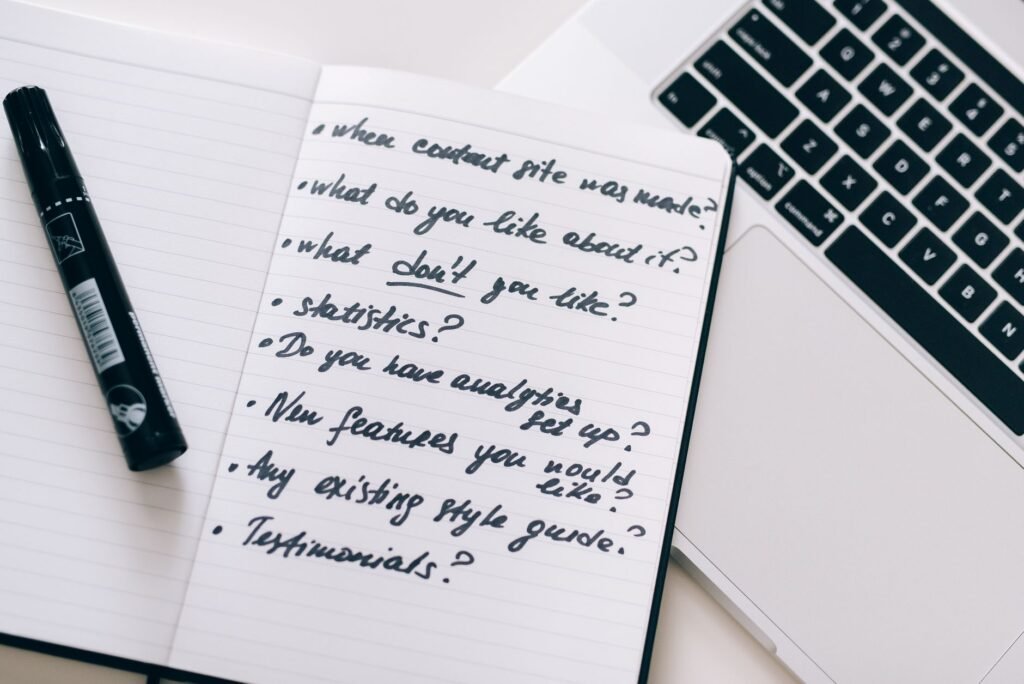 • when content site was made?
• what do you like about it?
• what don't you like?
• statistics?
• Do you have analytics
set up?
• New features you would
like?
• Any existing style guide?
• Testimonials?
2 3 4 5
Q W E R T
A S D F G H
shift Z X C V B N
fn
option
command